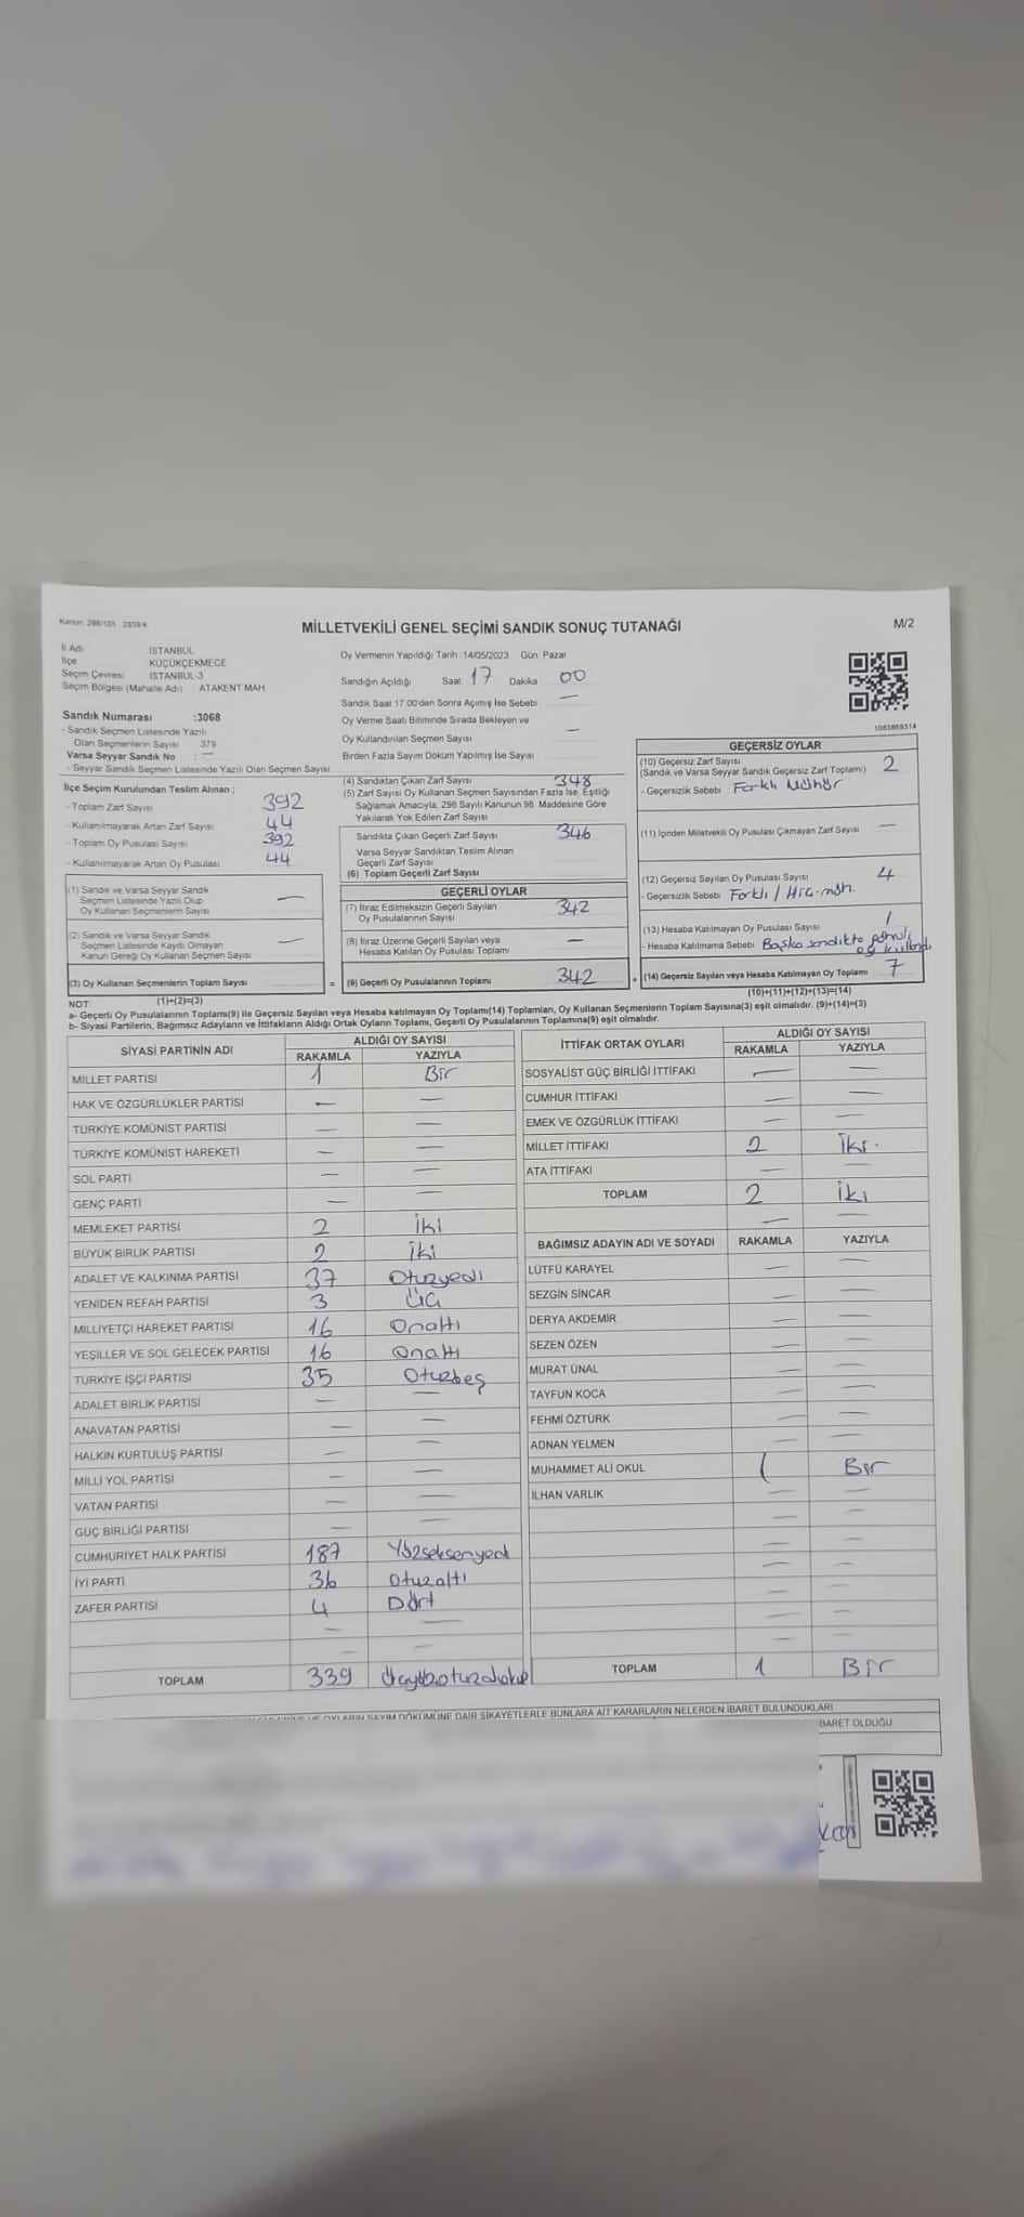 Kanun: 298/105 2839/4
MİLLETVEKİLİ GENEL SEÇİMİ SANDIK SONUÇ TUTANAĞI
M/2
İl Adı İSTANBUL
İlçe KÜÇÜKÇEKMECE
Seçim Çevresi İSTANBUL-3
Seçim Bölgesi (Mahalle Adı) ATAKENT MAH.
Sandık Numarası :3068
- Sandık Seçmen Listesinde Yazılı
Olan Seçmenlerin Sayısı 379
Varsa Seyyar Sandık No : —
- Seyyar Sandık Seçmen Listesinde Yazılı Olan Seçmen Sayısı
Oy Vermenin Yapıldığı Tarih :14/05/2023 Gün: Pazar
Sandığın Açıldığı Saat 17 Dakika 00
Sandık Saat 17.00'den Sonra Açılmış İse Sebebi —
Oy Verme Saati Bitiminde Sırada Bekleyen ve
Oy Kullandırılan Seçmen Sayısı —
Birden Fazla Sayım Döküm Yapılmış İse Sayısı
1083869314
İlçe Seçim Kurulundan Teslim Alınan ;
- Toplam Zarf Sayısı 392
- Kullanılmayarak Artan Zarf Sayısı 44
- Toplam Oy Pusulası Sayısı 392
- Kullanılmayarak Artan Oy Pusulası 44
(1) Sandık ve Varsa Seyyar Sandık
Seçmen Listesinde Yazılı Olup
Oy Kullanan Seçmenlerin Sayısı —
(2) Sandık ve Varsa Seyyar Sandık
Seçmen Listesinde Kaydı Olmayan
Kanun Gereği Oy Kullanan Seçmen Sayısı —
(3) Oy Kullanan Seçmenlerin Toplam Sayısı =
(1)+(2)=(3)
(4) Sandıktan Çıkan Zarf Sayısı 348
(5) Zarf Sayısı Oy Kullanan Seçmen Sayısından Fazla İse, Eşitliği
Sağlamak Amacıyla, 298 Sayılı Kanunun 98. Maddesine Göre
Yakılarak Yok Edilen Zarf Sayısı
Sandıkta Çıkan Geçerli Zarf Sayısı 346
Varsa Seyyar Sandıktan Teslim Alınan
Geçerli Zarf Sayısı
(6) Toplam Geçerli Zarf Sayısı
GEÇERLİ OYLAR
(7) İtiraz Edilmeksizin Geçerli Sayılan
Oy Pusulalarının Sayısı 342
(8) İtiraz Üzerine Geçerli Sayılan veya
Hesaba Katılan Oy Pusulası Toplamı —
(9) Geçerli Oy Pusulalarının Toplamı 342 +
GEÇERSİZ OYLAR
(10) Geçersiz Zarf Sayısı
(Sandık ve Varsa Seyyar Sandık Geçersiz Zarf Toplamı) 2
- Geçersizlik Sebebi Farklı Mühür
(11) İçinden Milletvekili Oy Pusulası Çıkmayan Zarf Sayısı —
(12) Geçersiz Sayılan Oy Pusulası Sayısı 4
- Geçersizlik Sebebi Farklı / Hiç-müh.
(13) Hesaba Katılmayan Oy Pusulası Sayısı 1
- Hesaba Katılmama Sebebi Başka sandıkta
(14) Geçersiz Sayılan veya Hesaba Katılmayan Oy Toplamı 7
(10)+(11)+(12)+(13)=(14)
NOT
a- Geçerli Oy Pusulalarının Toplamı(9) ile Geçersiz Sayılan veya Hesaba katılmayan Oy Toplamı(14) Toplamları, Oy Kullanan Seçmenlerin Toplam Sayısına(3) eşit olmalıdır. (9)+(14)=(3)
b- Siyasi Partilerin, Bağımsız Adayların ve İttifakların Aldığı Ortak Oyların Toplamı, Geçerli Oy Pusulalarının Toplamına(9) eşit olmalıdır.
SİYASİ PARTİNİN ADI ALDIĞI OY SAYISI
RAKAMLA YAZIYLA
MİLLET PARTİSİ 1 Bir
HAK VE ÖZGÜRLÜKLER PARTİSİ — —
TÜRKİYE KOMÜNİST PARTİSİ — —
TÜRKİYE KOMÜNİST HAREKETİ — —
SOL PARTİ — —
GENÇ PARTİ — —
MEMLEKET PARTİSİ 2 İki
BÜYÜK BİRLİK PARTİSİ 2 İki
ADALET VE KALKINMA PARTİSİ 37 Otuzyedi
YENİDEN REFAH PARTİSİ 3 Üç
MİLLİYETÇİ HAREKET PARTİSİ 16 Onaltı
YEŞİLLER VE SOL GELECEK PARTİSİ 16 Onaltı
TÜRKİYE İŞÇİ PARTİSİ 35 Otuzbeş
ADALET BİRLİK PARTİSİ — —
ANAVATAN PARTİSİ — —
HALKIN KURTULUŞ PARTİSİ — —
MİLLİ YOL PARTİSİ — —
VATAN PARTİSİ — —
GÜÇ BİRLİĞİ PARTİSİ — —
CUMHURİYET HALK PARTİSİ 187 Yüzseksenyedi
İYİ PARTİ 36 Otuzaltı
ZAFER PARTİSİ 4 Dört
TOPLAM 339 Üçyüzotuzdokuz
İTTİFAK ORTAK OYLARI ALDIĞI OY SAYISI
RAKAMLA YAZIYLA
SOSYALİST GÜÇ BİRLİĞİ İTTİFAKI — —
CUMHUR İTTİFAKI — —
EMEK VE ÖZGÜRLÜK İTTİFAKI — —
MİLLET İTTİFAKI 2 İki.
ATA İTTİFAKI — —
TOPLAM 2 İki
BAĞIMSIZ ADAYIN ADI VE SOYADI RAKAMLA YAZIYLA
LÜTFÜ KARAYEL — —
SEZGİN SİNCAR — —
DERYA AKDEMİR — —
SEZEN ÖZEN — —
MURAT ÜNAL — —
TAYFUN KOCA — —
FEHMİ ÖZTÜRK — —
ADNAN YELMEN — —
MUHAMMET ALİ OKUL 1 Bir
İLHAN VARLIK — —
TOPLAM 1 Bir
VE OYLARIN SAYIM DÖKÜMÜNE DAİR ŞİKAYETLERLE BUNLARA AİT KARARLARIN NELERDEN İBARET BULUNDUKLARI
BARET OLDUĞU